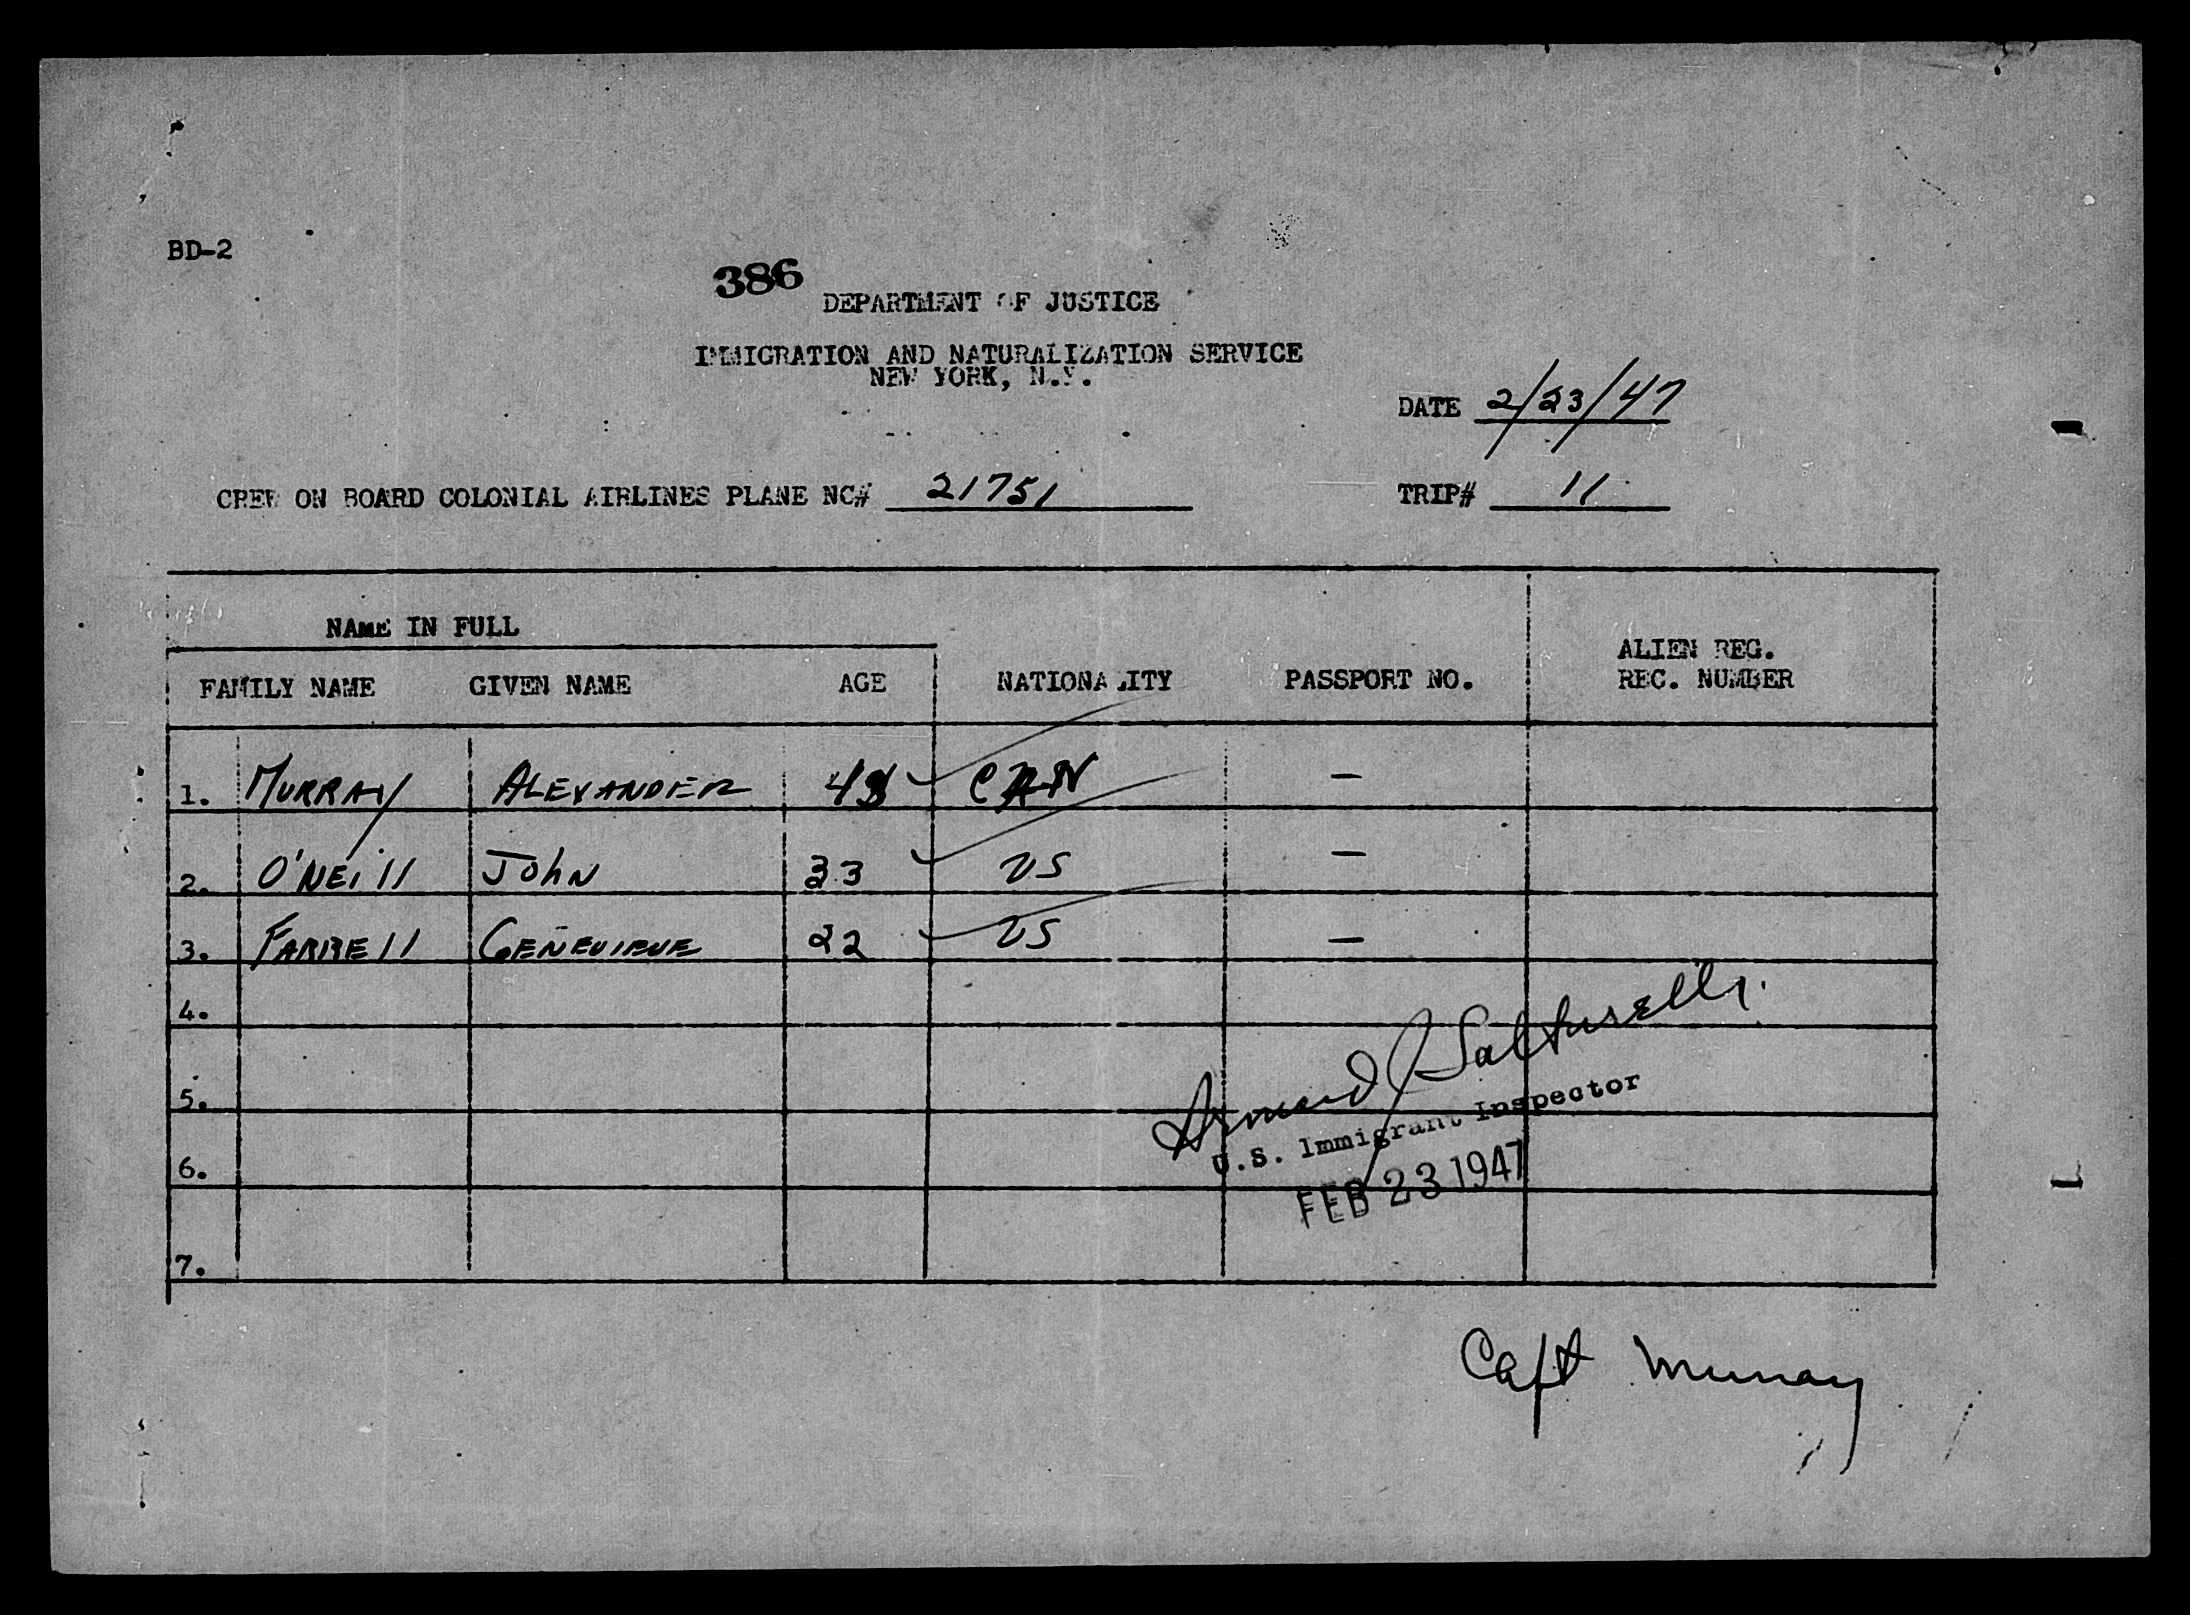 BD-2
386
DEPARTMENT OF JUSTICE
IMMIGRATION AND NATURALIZATION SERVICE
NEW YORK, N.Y.
DATE 2/23/47
CREW ON BOARD COLONIAL AIRLINES PLANE NC# 21751 TRIP# 11
NAME IN FULL
FAMILY NAME GIVEN NAME AGE NATIONALITY PASSPORT NO. ALIEN REG. REC. NUMBER
1. MURRAY ALEXANDER CAN —
2. O'NEill JohN 33 US —
3. FARRELL GENEVIEVE 22 US —
4.
5.
6.
7.
Armand J
U.S. Immigrant Inspector
FEB 23 1947
Capt Murray